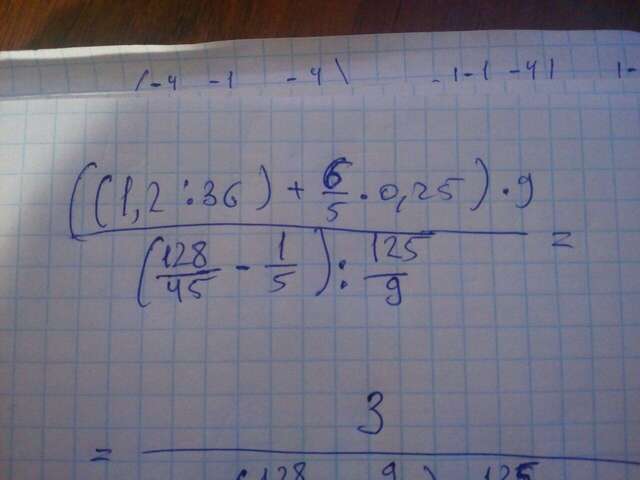 (-4 -1 -4) -1-1 -4)
((1,2:36) + 6/5 · 0,25) · 9
(128/45 - 1/5) : 125/9 =
= 3
(128 9) 125